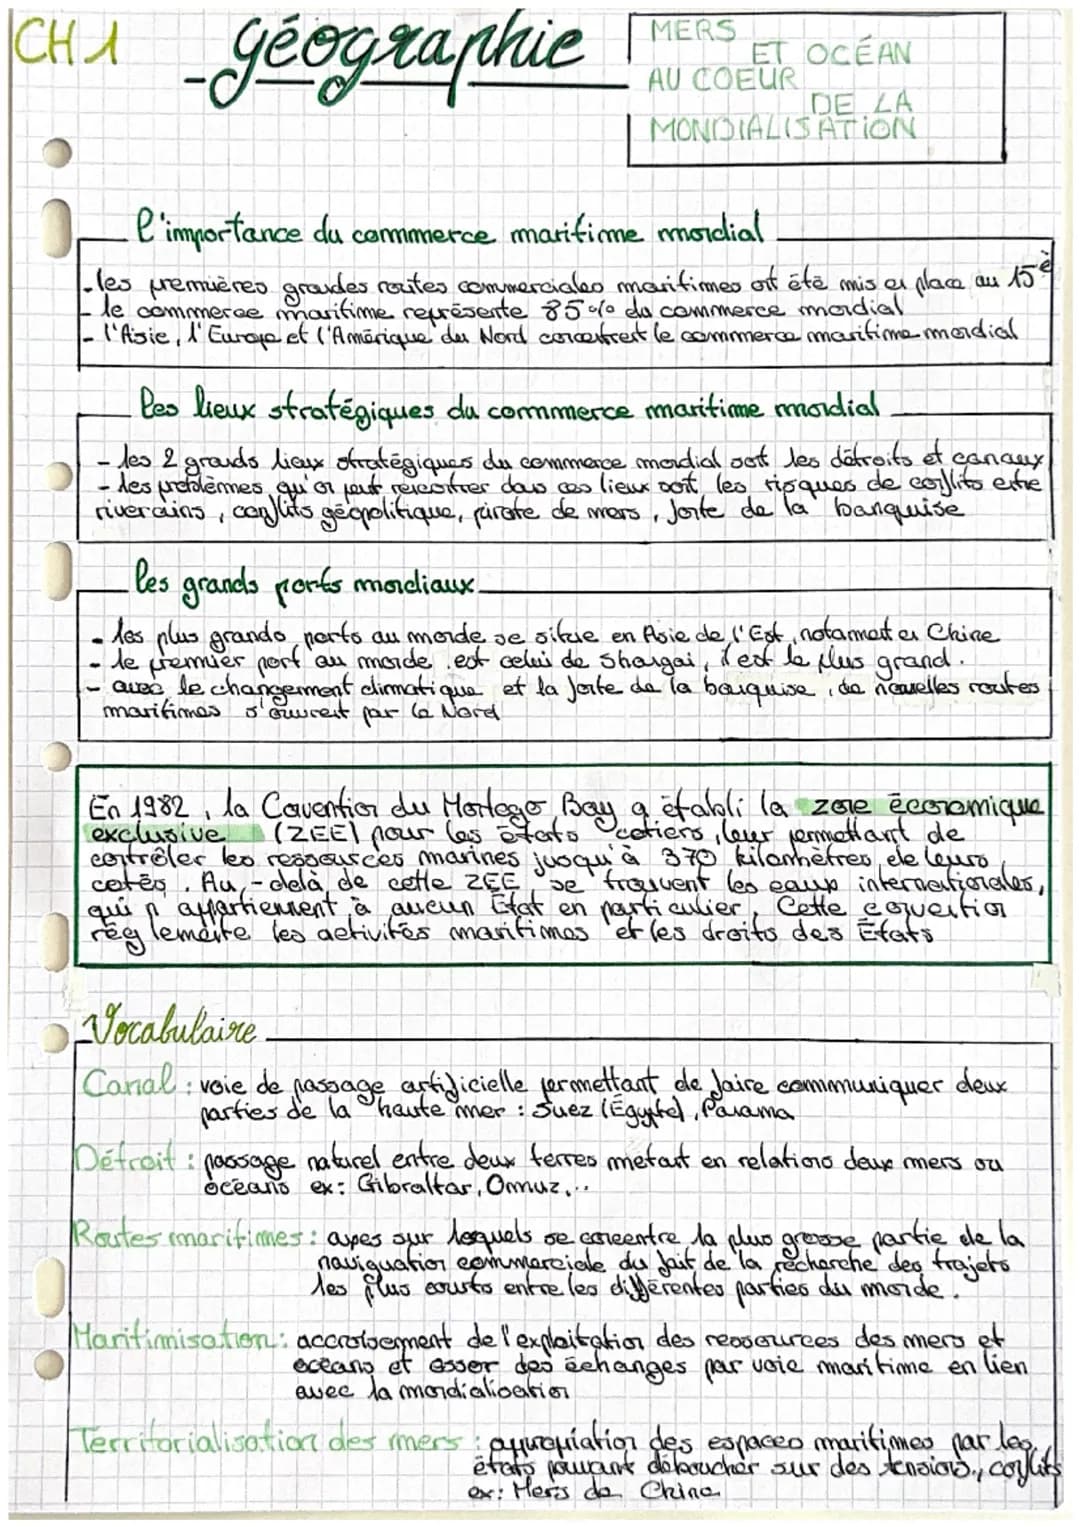 CH 1
géographie
MERS
ET OCÉAN
AU COEUR
DE LA
MONDIALISATION
l'importance du commerce maritime mondial
- les premières grandes routes commerciales maritimes ont été mis en place au 15è
- le commerce maritime représente 85% du commerce mondial
- l'Asie, l'Europe et l'Amérique du Nord concentrent le commerce maritime mondial
les lieux stratégiques du commerce maritime mondial
- les 2 grands lieux stratégiques du commerce mondial sont les détroits et canaux
- les problèmes qu'on peut rencontrer dans ces lieux sont les risques de conflits entre
riverains, conflits géopolitique, pirate de mers, fonte de la banquise
les grands ports mondiaux
- les plus grands ports au monde se situe en Asie de l'Est, notament en Chine
- le premier port au monde est celui de Shangai, il est le plus grand.
- avec le changement climatique et la fonte de la banquise, de nouvelles routes
maritimes s'ouvrent par le Nord
En 1982, la Convention du Montego Bay a établi la zone économique
exclusive (ZEE) pour les états cotiers, leur permettant de
contrôler les ressources marines jusqu'à 370 kilomhètres de leurs
cotés. Au-delà de cette ZEE, se trouvent les eaux internationales,
qui n'appartiennent à aucun État en particulier. Cette convention
réglemente les activités maritimes et les droits des États
Vocabulaire
Canal : voie de passage artificielle permettant de faire communiquer deux
parties de la haute mer : Suez (Égypte), Panama
Détroit : passage naturel entre deux terres metant en relations deux mers ou
océans ex: Gibraltar, Ormuz,..
Routes maritimes : axes sur lesquels se concentre la plus grosse partie de la
naviguation commerciale du fait de la recherche des trajets
les plus courts entre les différentes parties du monde.
Maritimisation : accroissement de l'exploitation des ressources des mers et
océans et essor des échanges par voie maritime en lien
avec la mondialisation
Territorialisation des mers : appropriation des espaces maritimes par les
états pouvant déboucher sur des tensions, conflits
ex: Mers de Chine